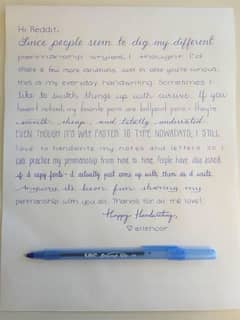 Hi Reddit,
Since people seem to dig my different
penmanship styles, I thought I'd
share a few more anyhow, well in case you're curious,
this is my everyday handwriting. Sometimes I
like to switch things up with cursive. If you
haven't noticed, my favorite pens are ballpoint pens - they're
smooth, cheap, and totally underrated.
EVEN THOUGH IT'S WAY FASTER TO TYPE NOWADAYS, I STILL
love to handwrite my notes and letters so I
can practice my penmanship from time to time. People have also asked
if I copy fonts - I actually just come up with them as I write.
Anyway, it's been fun sharing my
penmanship with you all. Thanks for all the love!
Happy Handwriting,
♡ ellencor
BIC Round Stic